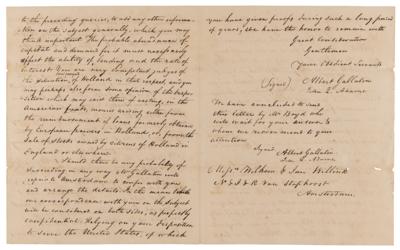 to the preceding queries, to add any other informa-
tion on the subject generally, which you may
think important. The probable abundance of
capital and demand for it must necessarily
affect the ability of lending and the rate of
interest. You are very competent judges of
the situation of Holland in that respect, and you
may perhaps also form some opinion of the dispo-
sition which may exist there of vesting, in the
American funds, monies arising either from
the reimbursement of loans formerly obtained
by European powers in Holland, or, from the
sale of stocks owned by citizens of Holland in
England or elsewhere.
Should there be any probability of
succeeding in any way Mr Gallatin will
repair to Amsterdam to confer with you
and arrange the details. In the mean while
our correspondence with you on the subject
will be considered on both sides, as perfectly
confidential. Relying on your disposition
to serve the United States, of which
you have given proofs during such a long period
of years, we have the honor to remain with
Great Consideration
Gentlemen
Your Obedient Servants
(Signed) Albert Gallatin
We have concluded to send
this letter by Mr Boyd who
will wait for your answer &
whom we recommend to your
attention
Signed
Albert Gallatin
Messrs Wilhem & Jan Willink
N. & J. & R. Van Staphorst
Amsterdam